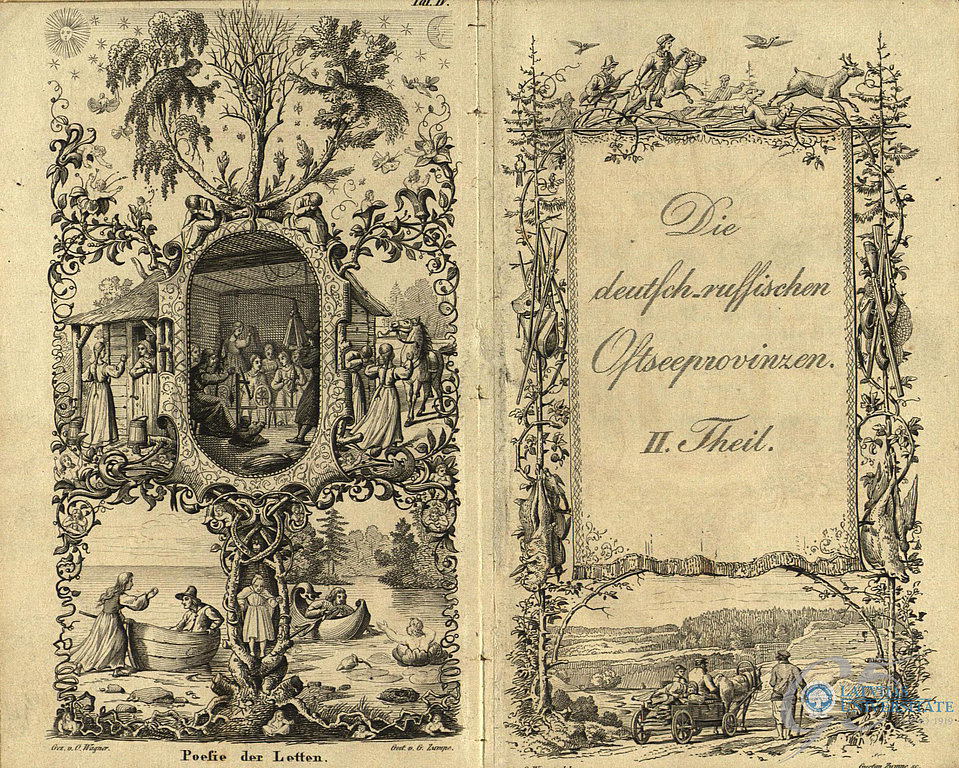 Taf. IV.
Gez. v. O. Wagner.
Gest. v. G. Zumpe.
Poesie der Letten.
Die
deutſch-ruſſischen
Oſtseeprovinzen.
II. Theil.
Gustav Zumpe sc.
LATVIJAS
UNIVERSITĀTE
1919